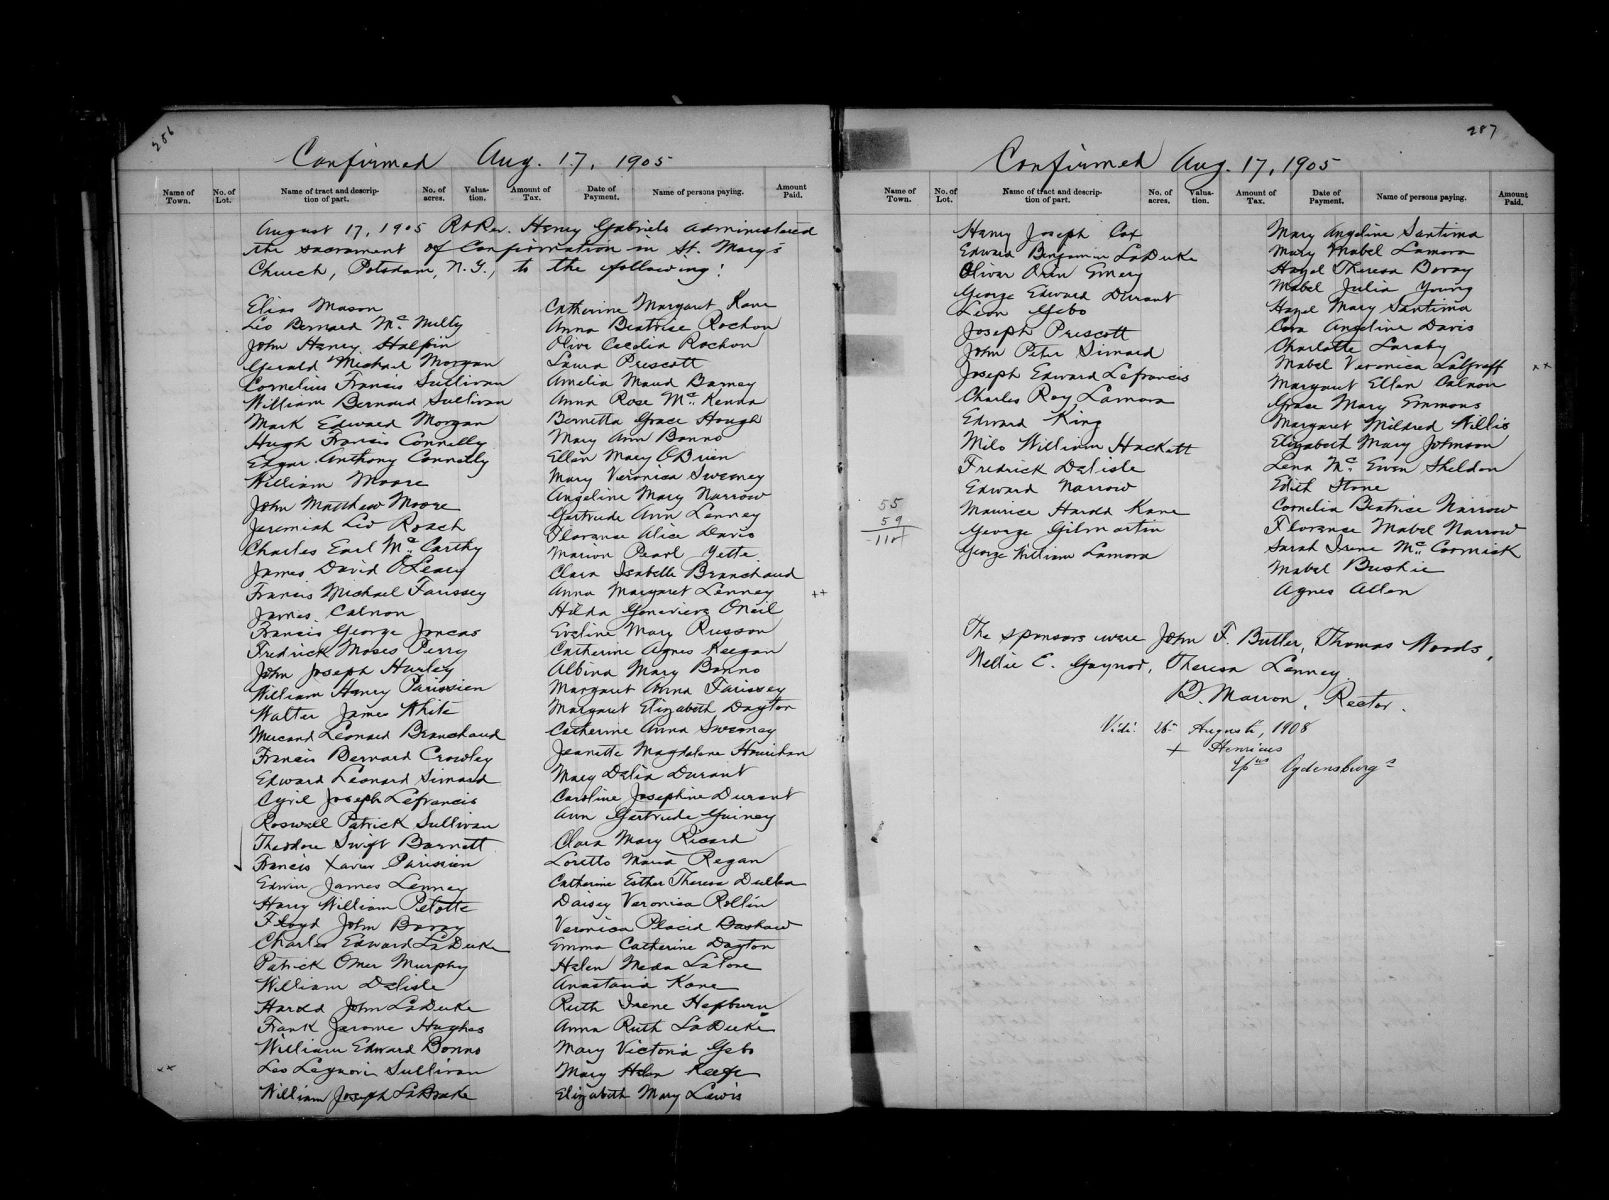 286
Confirmed Aug. 17, 1905
Name of Town. No. of Lot. Name of tract and description of part. No. of acres. Valuation. Amount of Tax. Date of Payment. Name of persons paying. Amount Paid.
August 17, 1905 Rt Rev. Henry Gabriels administered
the sacrament of Confirmation in St. Mary's
Church, Potsdam, N.Y., to the following:
Elias Mason
Leo Bernard Mc Nulty
John Henry Halpin
Gerald Michael Morgan
Cornelius Francis Sullivan
William Bernard Sullivan
Mark Edward Morgan
Hugh Francis Connelly
Edgar Anthony Connelly
William Moore
John Matthew Moore
Jeremiah Leo Roach
Charles Earl Mc Carthy
James David O'Leary
Francis Michael Farissey
James Calnon
Francis George Joncas
Fredrick Moses Perry
John Joseph Hurley
William Henry Parissien
Walter James White
Leonard Branchaud
Francis Bernard Crowley
Edward Leonard Simard
Cyril Joseph Lefrancis
Roswell Patrick Sullivan
Theodore Swift Barnett
Francis Xavier Parissien
Edwin James Lenney
Harry William Pelotte
Floyd John Boray
Charles Edward LaDuke
Patrick Omer Murphy
William Delisle
Harold John LaDuke
Frank Jerome Hughes
William Edward Bonno
Leo Sullivan
William Joseph
Catherine Margaret Kane
Anna Beatrice Rochon
Olive Cecelia Rochon
Laura Prescott
Amelia Maud Barney
Anna Rose Mc Kenda
Bernetta Grace Hough
Mary Ann Bonno
Ellen Mary O'Brien
Mary Veronica Sweeney
Angeline Mary Narrow
Gertrude Ann Lenney
Florence Alice Davis
Marion Pearl Yette
Clara Isabelle Branchaud
Anna Margaret Lenney ++
Hilda Genevieve O'Neil
Eveline Mary Russon
Catherine Agnes Keegan
Albina Mary Bonno
Margaret Anna Farissey
Margaret Elizabeth Dayton
Catherine Anna Sweeney
Jeanette Magdalene Hourihan
Mary Delia Durant
Caroline Josephine Durant
Ann Gertrude Guiney
Clara Mary Ricard
Loretto Maria Regan
Catherine Esther Theresa Dullea
Daisey Veronica Rollin
Veronica Placid Bashaw
Emma Catherine Dayton
Helen Meda LaPore
Anastasia Kane
Ruth Irene Hepburn
Anna Ruth LaDuke
Mary Victoria Gebo
Mary Helen Keefe
Elizabeth Mary Lewis
287
Confirmed Aug. 17, 1905
Name of Town. No. of Lot. Name of tract and description of part. No. of acres. Valuation. Amount of Tax. Date of Payment. Name of persons paying. Amount Paid.
Henry Joseph Cox
Edward Benjamin LaDuke
Oliver Orin Emery
George Edward Durant
Leon Gebo
Joseph Prescott
John Peter Simard
Joseph Edward Lefrancis
Charles Roy Lamora
Edward King
Milo William Hackett
Fredrick Delisle
Edward Narrow
Maurice Harold Kane
George Gilmartin
George William Lamora
55
59
114
Mary Angeline Santima
Mary Mabel Lamora
Hazel Theresa Boray
Mabel Julia Young
Hazel Mary Santima
Cora Angeline Davis
Charlotte Laraby
Mabel Veronica LaGraff ++
Margaret Ellen Calnon
Grace Mary Emmons
Margaret Mildred Willis
Elizabeth Mary Johnson
Lena Mc Ewen Sheldon
Edith Stone
Cornelia Beatrice Narrow
Florence Mabel Narrow
Sarah Irene Mc Cormick
Mabel Bushie
Agnes Allen
The sponsors were John F. Butler, Thomas Woods,
Nellie E. Gaynor, Theresa Lenney.
B. Marron, Rector.
Vidi Augusti, 1908
+ Henricus
Epus Ogdensburgs